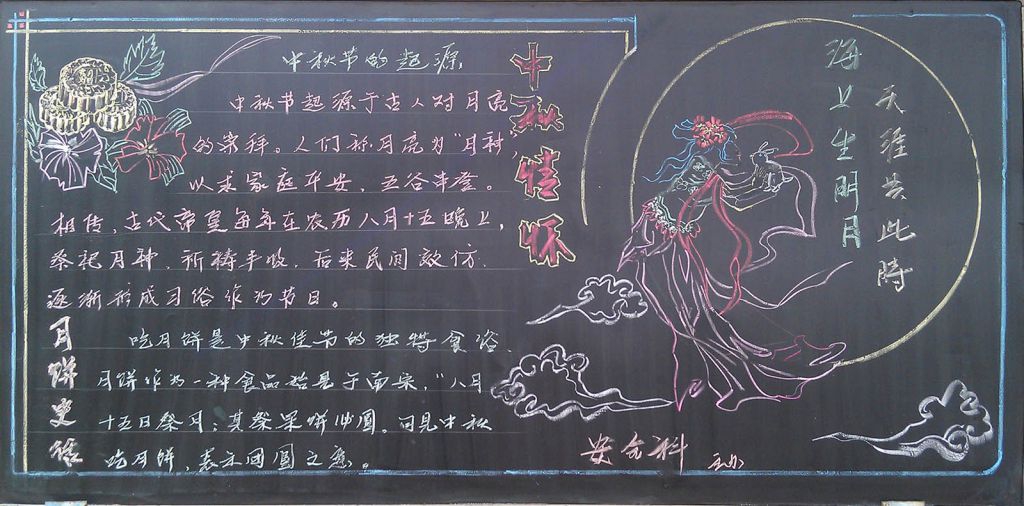 中秋节的起源
中秋节起源于古人对月亮
的崇拜。人们称月亮为“月神”，
以求家庭平安，五谷丰登。
相传，古代帝皇每年在农历八月十五晚上，
祭祀月神，祈祷丰收，后来民间效仿，
逐渐形成习俗作为节日。
中秋情怀
月饼史话
吃月饼是中秋佳节的独特食俗，
月饼作为一种食品始见于南宋，“八月
十五日祭月：其祭果饼必圆，可见中秋
吃月饼，表示团圆之意。
海上生明月
天涯共此時
安全科 主办